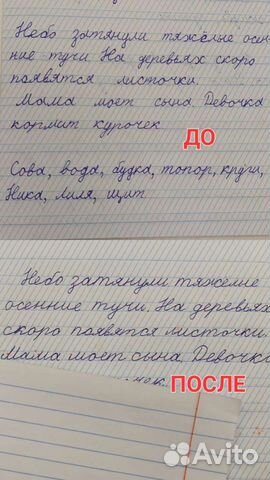 Небо затянули тяжёлые осен-
ние тучи. На деревьях скоро
появятся листочки.
Мама моет сына. Девочка
кормит курочек.
ДО
Сова, вода, будка, топор, круги,
Ника, Лиля, щит.
Небо затянули тяжелые
осенние тучи. На деревьях
скоро появятся листочки.
Мама моет сына. Девочка
ПОСЛЕ
Avito